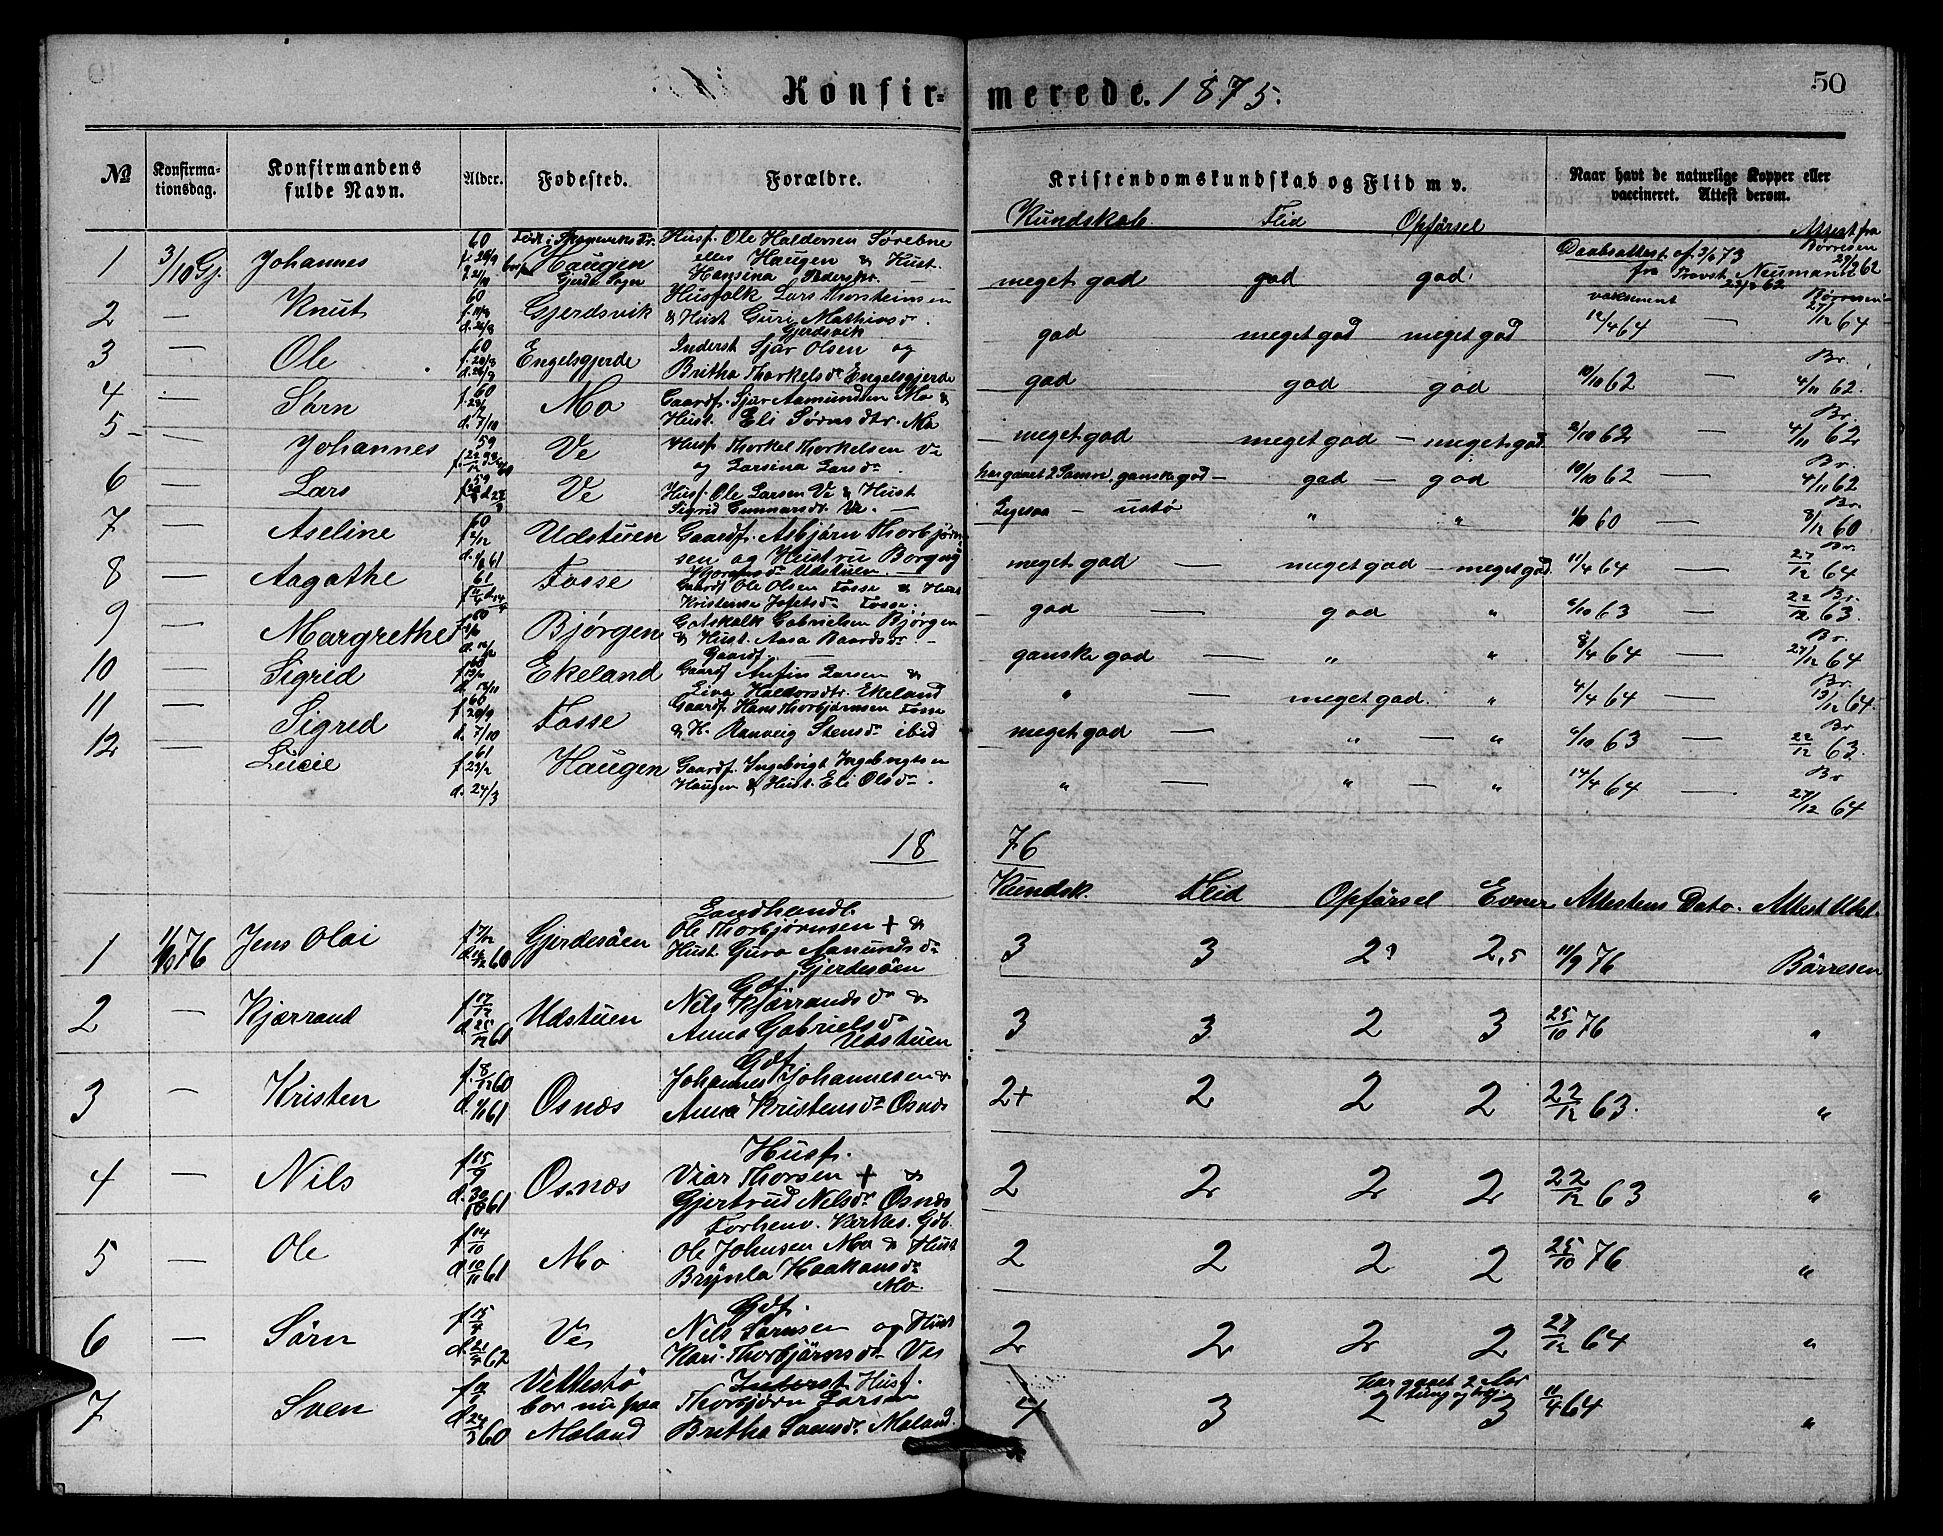 Konfirmerede. 1875.
50
№ Konfirmationsdag. Konfirmandens fulde Navn. Alder. Fødested. Forældre. Kristendomskundskab og Flid m v. Naar havt de naturlige Kopper eller vaccineret. Attest derom.
Kundskab. Flid Opførsel Attest fra
1 3/10 Gj. Johannes 60 Haugen Husf. Ole Haldorsen Sørebne eller Haugen & Hust. Hansina meget god god god Daabsattest af 3/6 73 fra Provst Neumann Børresen 62
2 — Knut 60 Gjerdsvik Husfolk Lars Thorsteinsen & Hust Guri Mathiasdr. Gjerdsvik god meget god meget god 12/4 64 — Børresen 27/12 64
3 — Ole 60 Engelsgjerde Inderst Sjur Olsen og Britha Thorkelsdr Engelsgjerde god god god 10/10 62 — Br. 4/11 62.
4 — Sørn 60 Mo Gaardf. Sjur Aamundsen Mo & Hust. Eli Sørnsdtr. Mo meget god meget god — meget god 2/10 62 — Br. 4/11 62
5 — Johannes 59 Ve Husf. Thorkel Thorkelsen Ve og Larsina Larsdr har gaaet 2 ganske god — god — god 10/10 62 — Br. 4/11 62
6 — Lars 59 Ve Husf. Ole Larsen Ve & Hust Sigrid Gunnarsdr. Ve. — Ligesaa — ustø " " 60 — Br. 8/12 60
7 — Aseline 60 Udstuen Gaardf. Asbjørn Thorbjørnsen og Hustru Borgny Udstuen. meget god — meget god — meget god 11/4 64 — Br. 27/12 64
8 — Aagathe 61 Fosse Gaardf Ole Olsen Fosse & Hust Kristense Josefsdr Fosse. god — god " 6/10 63 — Br. 22/12 63.
9 — Margrethe 60 Bjørgen Gotskalk Gabrielsen Bjørgen & Hust. Aasa Baardsdr — Gaardf. ganske god — " " 8/4 64 — Br. 27/12 64
10 — Sigrid 60 Ekeland Gaardf Anfin Larsen & Siva Haldorsdtr. Ekeland " — meget god. " 4/4 64 — Br. 13/12 64.
11 — Sigrid 60 Fosse Gaardf. Hans Thorbjørnsen Fosse & H. Ranveig Stensdr ibid meget god — " — " 6/10 63 — Br 22/12 63.
12 — Lucie 61 f. 23/2 d. 24/3 Haugen Gaardf. Ingebrigt Ingebrigtsen Haugen & Hust. Eli Olsdr. " — " — " 14/4 64 — Br 27/12 64
18 76
Kundsk. Flid Opførsel Evner Attestens Dato. Attest Udst.
1 1/10 76 Jens Olai 60 Gjerdesøen Landhandl. Ole Thorbjørnsen + & Hust. Guro Aamundsdr Gjerdesøen 3 3 2 2,5 11/9 76 Børresen
2 — Kjærrand f 17/12 d 25/12 61 Udstuen Gdf. Nils Kjærrandsdr & Anna Gabrielsdr Udstuen 3 3 2 3 25/10 76 "
3 — Kristen f. 8/12 60 d 61 Osnæs Gdf. Johannes Johannesen & Anna Kristensdr Osnæs 2+ 2 2 2 22/12 63. "
4 — Nils f 15/9 d. 30/10 61 Osnæs Husf. Viar Thorsen + & Gjertrud Nilsdr Osnæs 2 2 2 2 22/12 63 "
5 — Ole f 14/10 d 10/11 61 Mo Forhenv. Kirkes. Gdb. Ole Johnsen Mo & Hust Brynla Haakonsdr Mo. 2 2 2 2 25/10 76 "
6 — Sørn f 15/4 d. 21/4 62 Ve Gdf. Nils Sørnsen og Hust Kari Thorbjørnsdr Ve 2 2 2 2 27/12 64 "
7 — Sven 60 Vettestø bor nu paa Maland Inderst Husf. Thorbjørn Larsen Britha Maland. 4 3 2 3 har gaaet 2 Aar 11/4 64 "